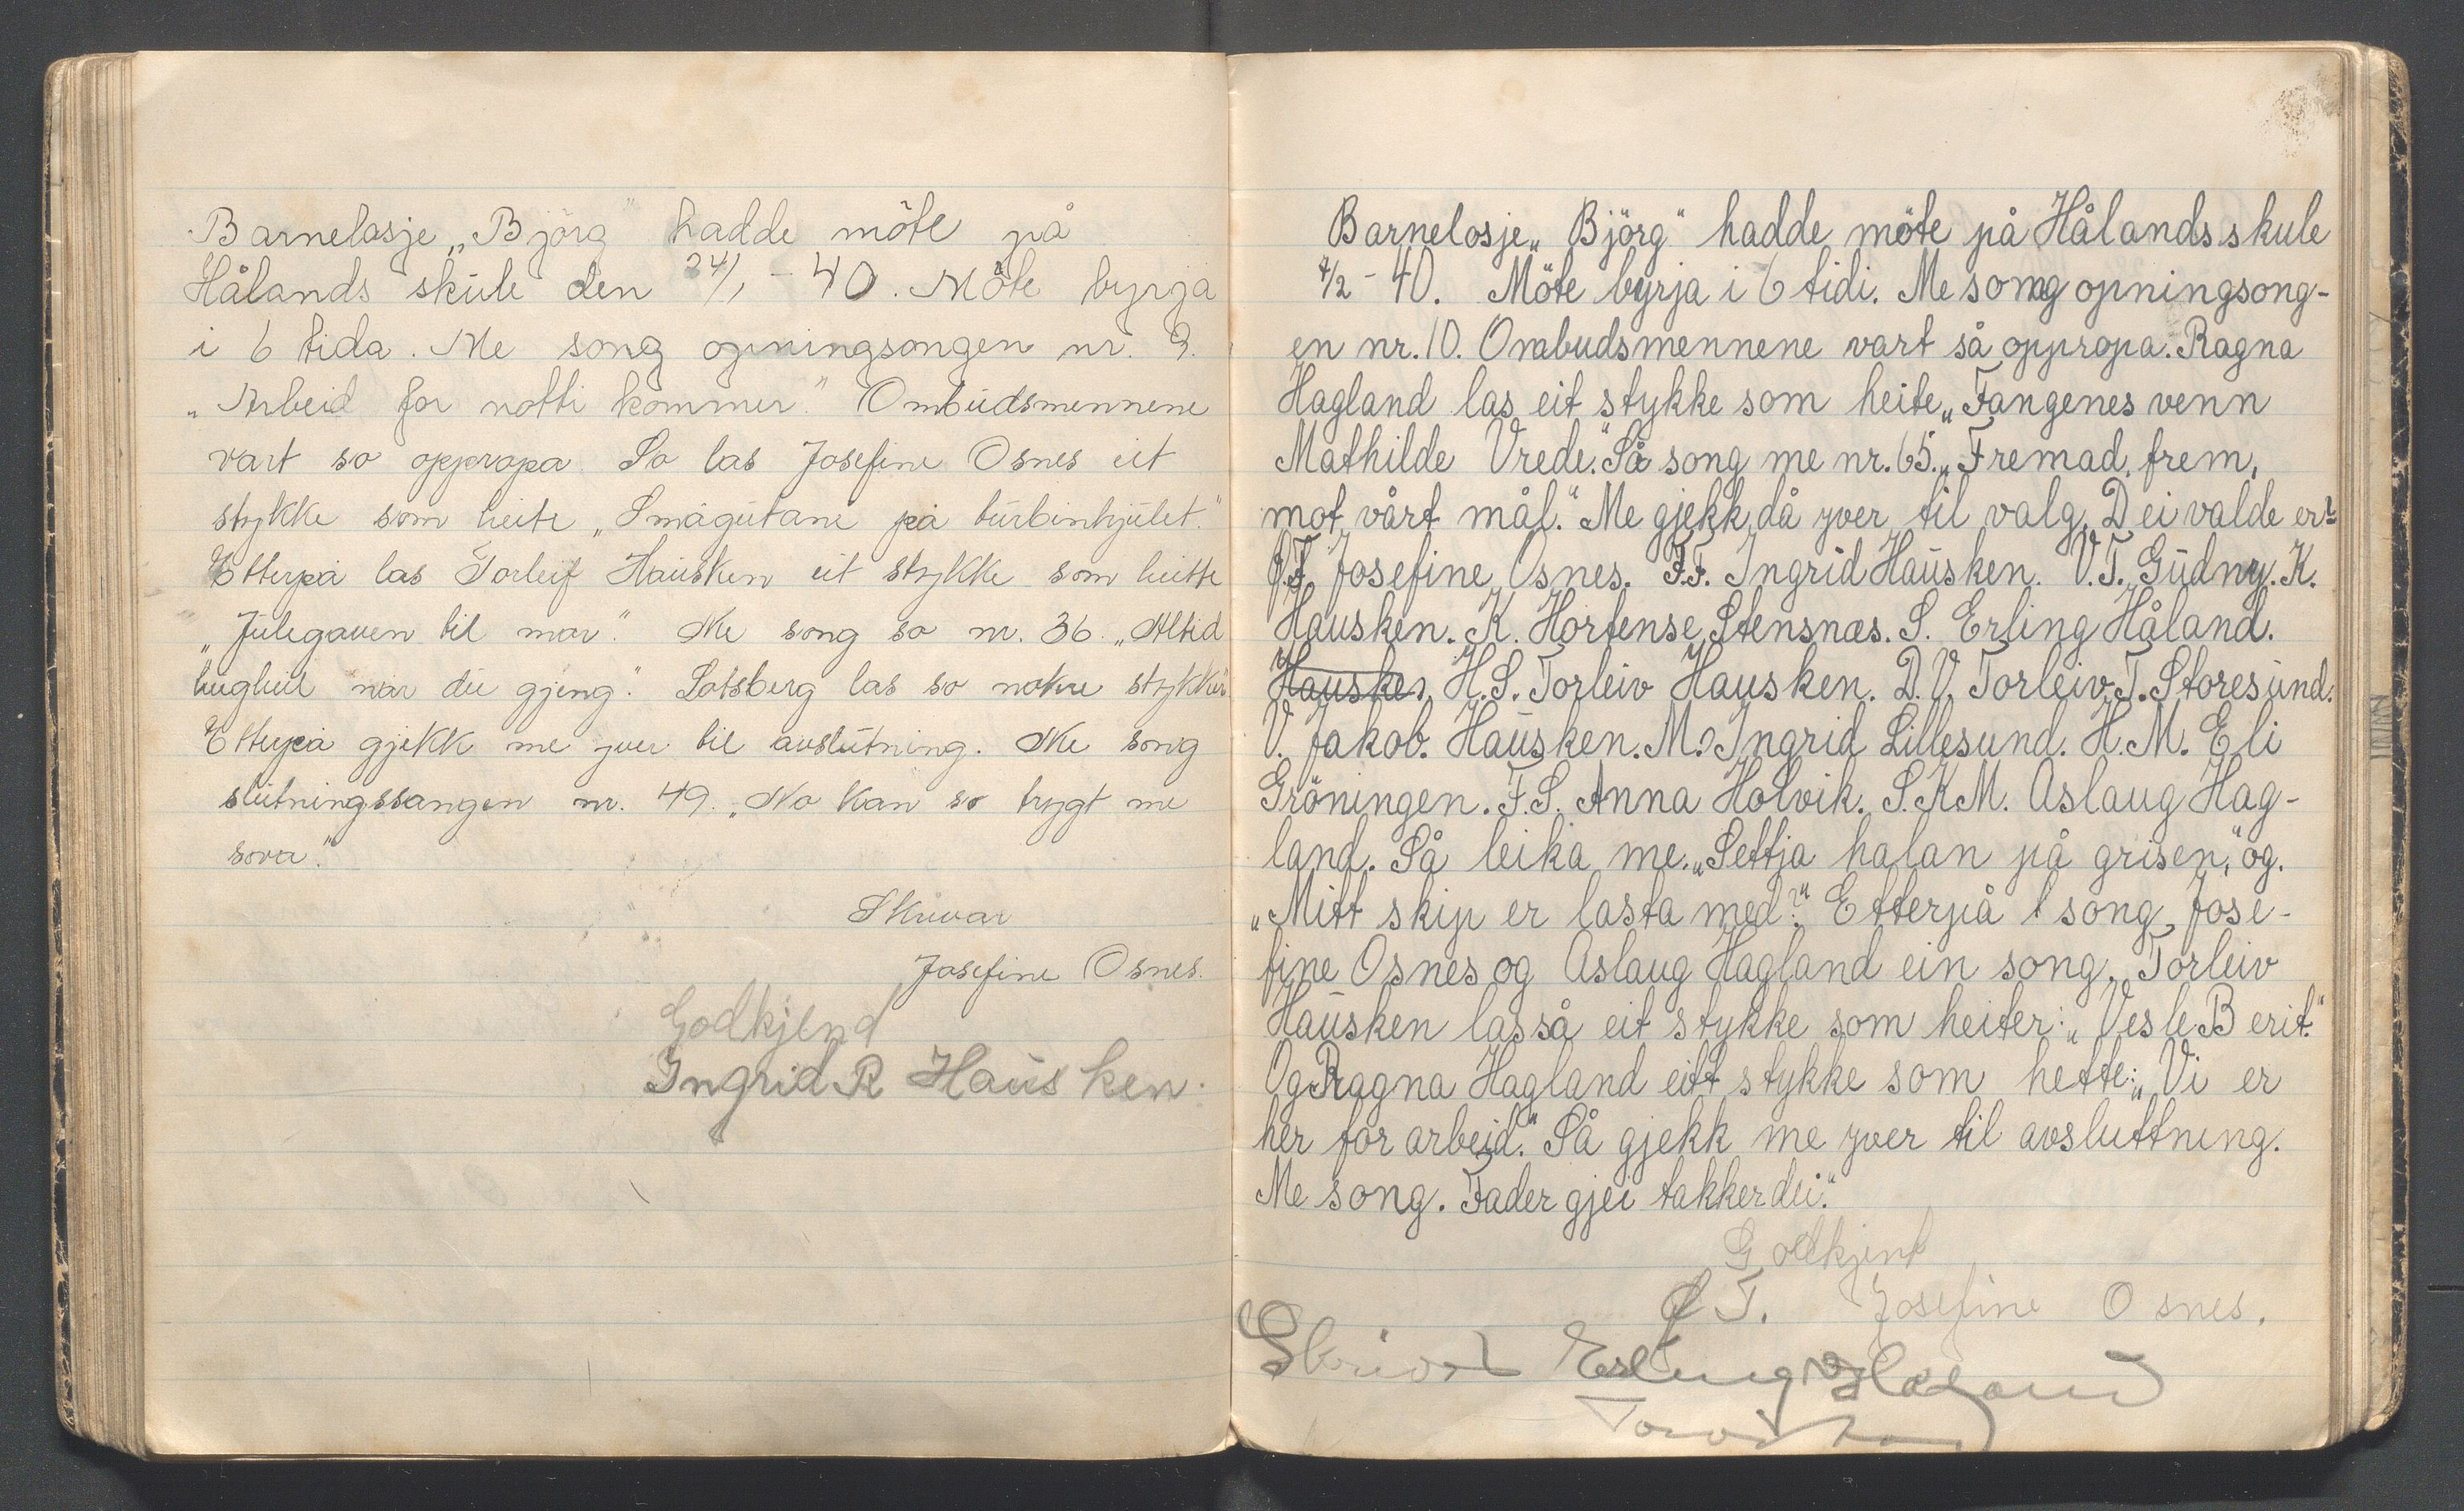 Barnelosje „Björg" hadde möte på
Hålands skule den 24/1 - 40. Möte byrja
i 6 tida. Me song opningsongen nr. 9.
„Arbeid for notti kommer." Ombudsmennene
vart so oppropa. So las Josefine Osnes eit
stykke som heite „Smågutane på turbinhjulet."
Etterpå las Torleif Hausken eit stykke som heitte
„Julegaven til mor." Me song so nr. 36. „Altid
hugheil når du gjeng." Lotsberg las so nokre stykker
Etterpå gjekk me yver til avslutning. Me song
slutningssangen nr. 49. „No kan so trygt me
sova."
Skrivar
Josefine Osnes.
Godkjend
Ingrid R Hausken.
Barnelosje „Björg" hadde möte på Hålands skule
4/2 - 40. Möte byrja i 6 tidi. Me song opningsong-
en nr. 10. Ombudsmennene vart så oppropa. Ragna
Hagland las eit stykke som heite „Fangenes venn
Mathilde Vrede." Så song me nr. 65. „Fremad, frem,
mot vårt mål." Me gjekk då yver til valg. Dei valde er:
Ø.T. Josefine Osnes. F.T. Ingrid Hausken. V.T. Gudny. K.
Hausken. K. Hortense Stensnæs. S. Erling Håland.
Hausken H.S. Torleiv Hausken. D.V. Torleiv. T. Storesund.
V. Jakob. Hausken. M. Ingrid Lillesund. H.M. Eli
Gröningen. F.S. Anna Holvik. S.K.M. Aslaug Hag-
land. Så leika me. „Settja halan på grisen," og.
„Mitt skip er lasta med?" Etterpå song Jose-
fine Osnes og Aslaug Hagland ein song. Torleiv
Hausken las så eit stykke som heiter: „Vesle Berit."
Og Ragna Hagland eitt stykke som hette: „Vi er
her for arbeid." Så gjekk me yver til avsluttning.
Me song. Fader gjei takker dei."
Godkjent
Ø T. Josefine Osnes.
Skrivar Erling Håland